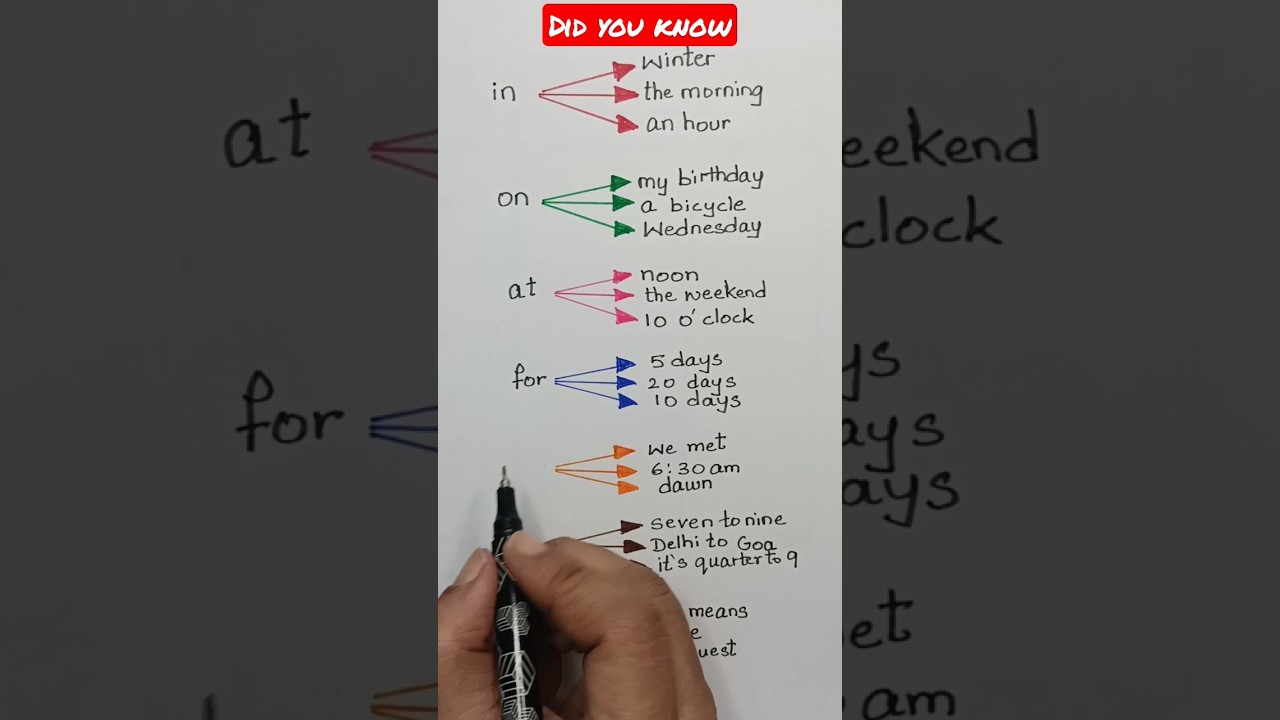 DID YOU KNOW
in
Winter
the morning
an hour
on
my birthday
a bicycle
Wednesday
at
noon
the weekend
10 o'clock
for
5 days
20 days
10 days
we met
6:30 am
dawn
seven to nine
Delhi to Goa
it's quarter to 9
means
e
uest
at
eekend
clock
for
ys
ays
ays
et
am